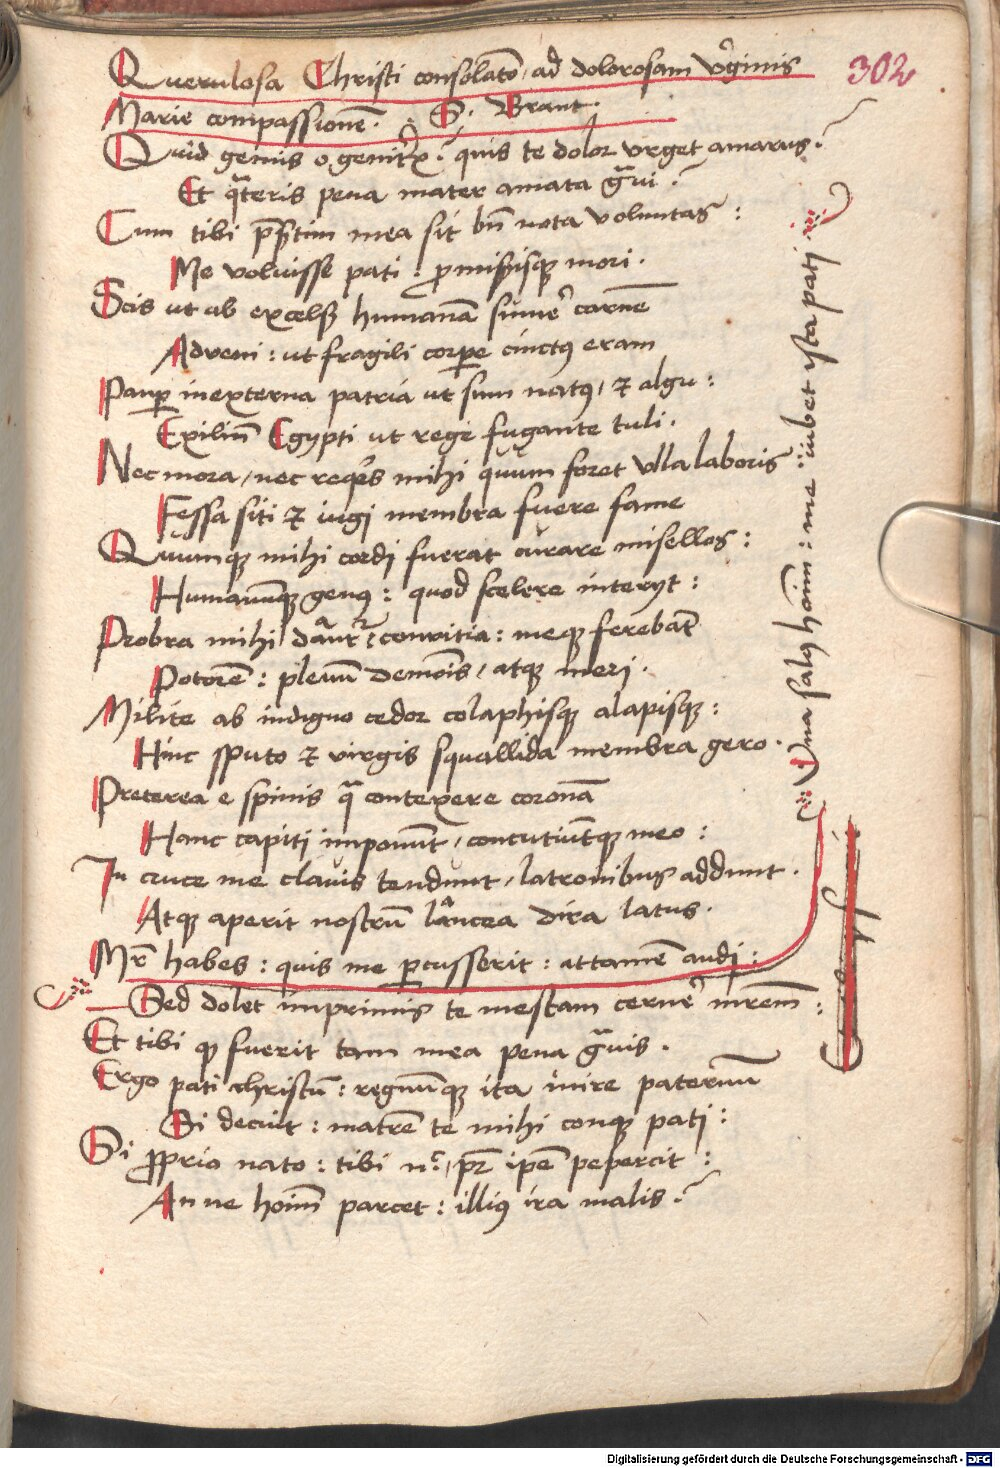 Querulosa Christi consolatō, ad dolorosam v̓ginis
302
Marie compassionē. S. Brant.
Quid gemis o genitrix? quis te dolor vrget amarus?
Et q̄teris pena mater amata gͣui?
Cum tibi p̄sertim mea sit bn̄ nota voluntas:
Me voluisse pati: promissisqꝫ mori.
Scis ut ab excelsis humanā sumer̓ carnē
Adveni: ut fragili corpꝑe cinctꝰ eram
Pauꝑ in externa patria ut sum natꝰ, ⁊ algu:
Exiliū Egypti ut rege fugante tuli.
Nec mora, nec reqͥes mihi quum foret vlla laboris
Fessa siti ⁊ iugi membra fuere fame
Quumqꝫ mihi cordi fuerat curare misellos:
Humanumqꝫ genꝰ: quod scelere interijt:
Probra mihi dāntr̄ ⁊ convitia: meqꝫ ferebāt
Potorē: plenū demōis, atqꝫ meri.
Milite ab indigno cedor colaphisqꝫ alapisqꝫ:
Hinc sputo ⁊ virgis squallida membra gero.
Preterea e spinis qͣ contexere coronā
Hanc capiti imponūt, concutiūtqꝫ meo:
In cruce me clavis tendunt, latronibus addunt.
Atqꝫ aperit nostrū lancea dira latus.
Mr̄ habes: quis me ꝑcusserit: attamē audi:
Vna salꝰ hoīm: me iubet ista pati
Sed dolet imprimis te mestam cerner̓ mr̄em:
Et tibi qꝫ fuerit tam mea pena gͣuis.
Ergo pati christū: regnūqꝫ ita inire paternū
Si decuit: matrē te mihi conqꝫ pati:
Si ꝓprio nato: tibi nͨ, pr̄ ip̄e pepercit:
An ne hoīm parcet: illiꝰ ira malis?
Digitalisierung gefördert durch die Deutsche Forschungsgemeinschaft - DFG